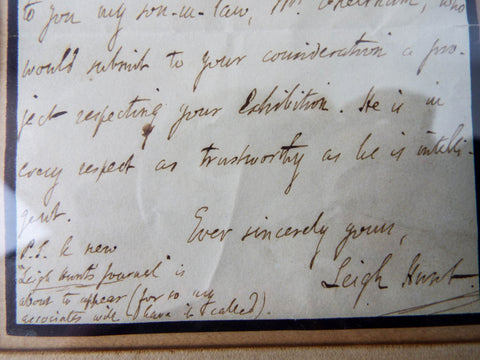 to you my son-in-law, Mr. Cheltnam, who
would submit to your consideration a pro-
ject respecting your Exhibition. He is in
every respect as trustworthy as he is intelli-
gent.
Ever sincerely yours,
Leigh Hunt.
P.S. A new
"Leigh Hunt's Journal" is
about to appear (for so my
associates will have it called).